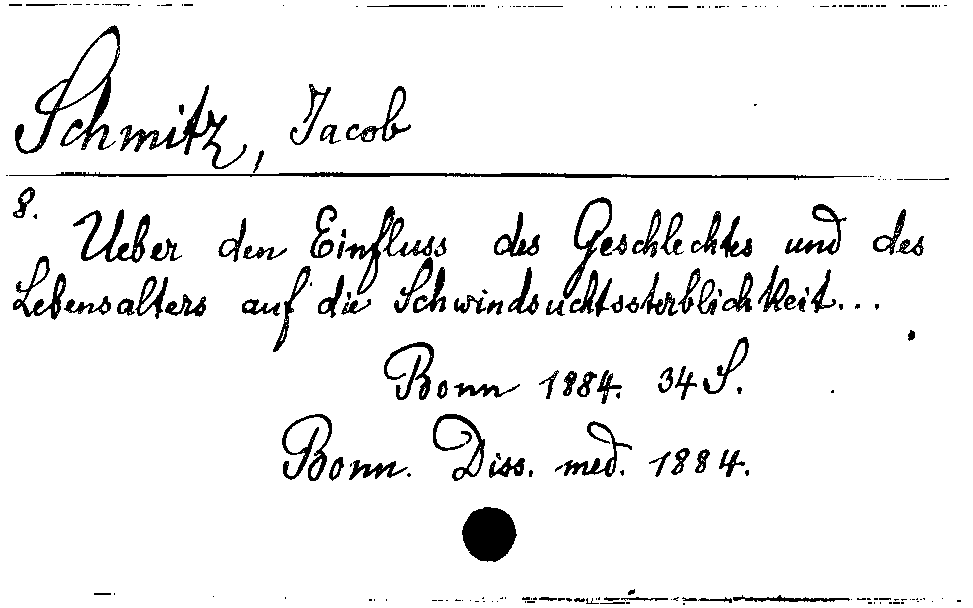 Schmitz, Jacob
8.
Ueber den Einfluss des Geschlechtes und des
Lebensalters auf die Schwindsuchtssterblichkeit...
Bonn 1884. 34 S.
Bonn. Diss. med. 1884.